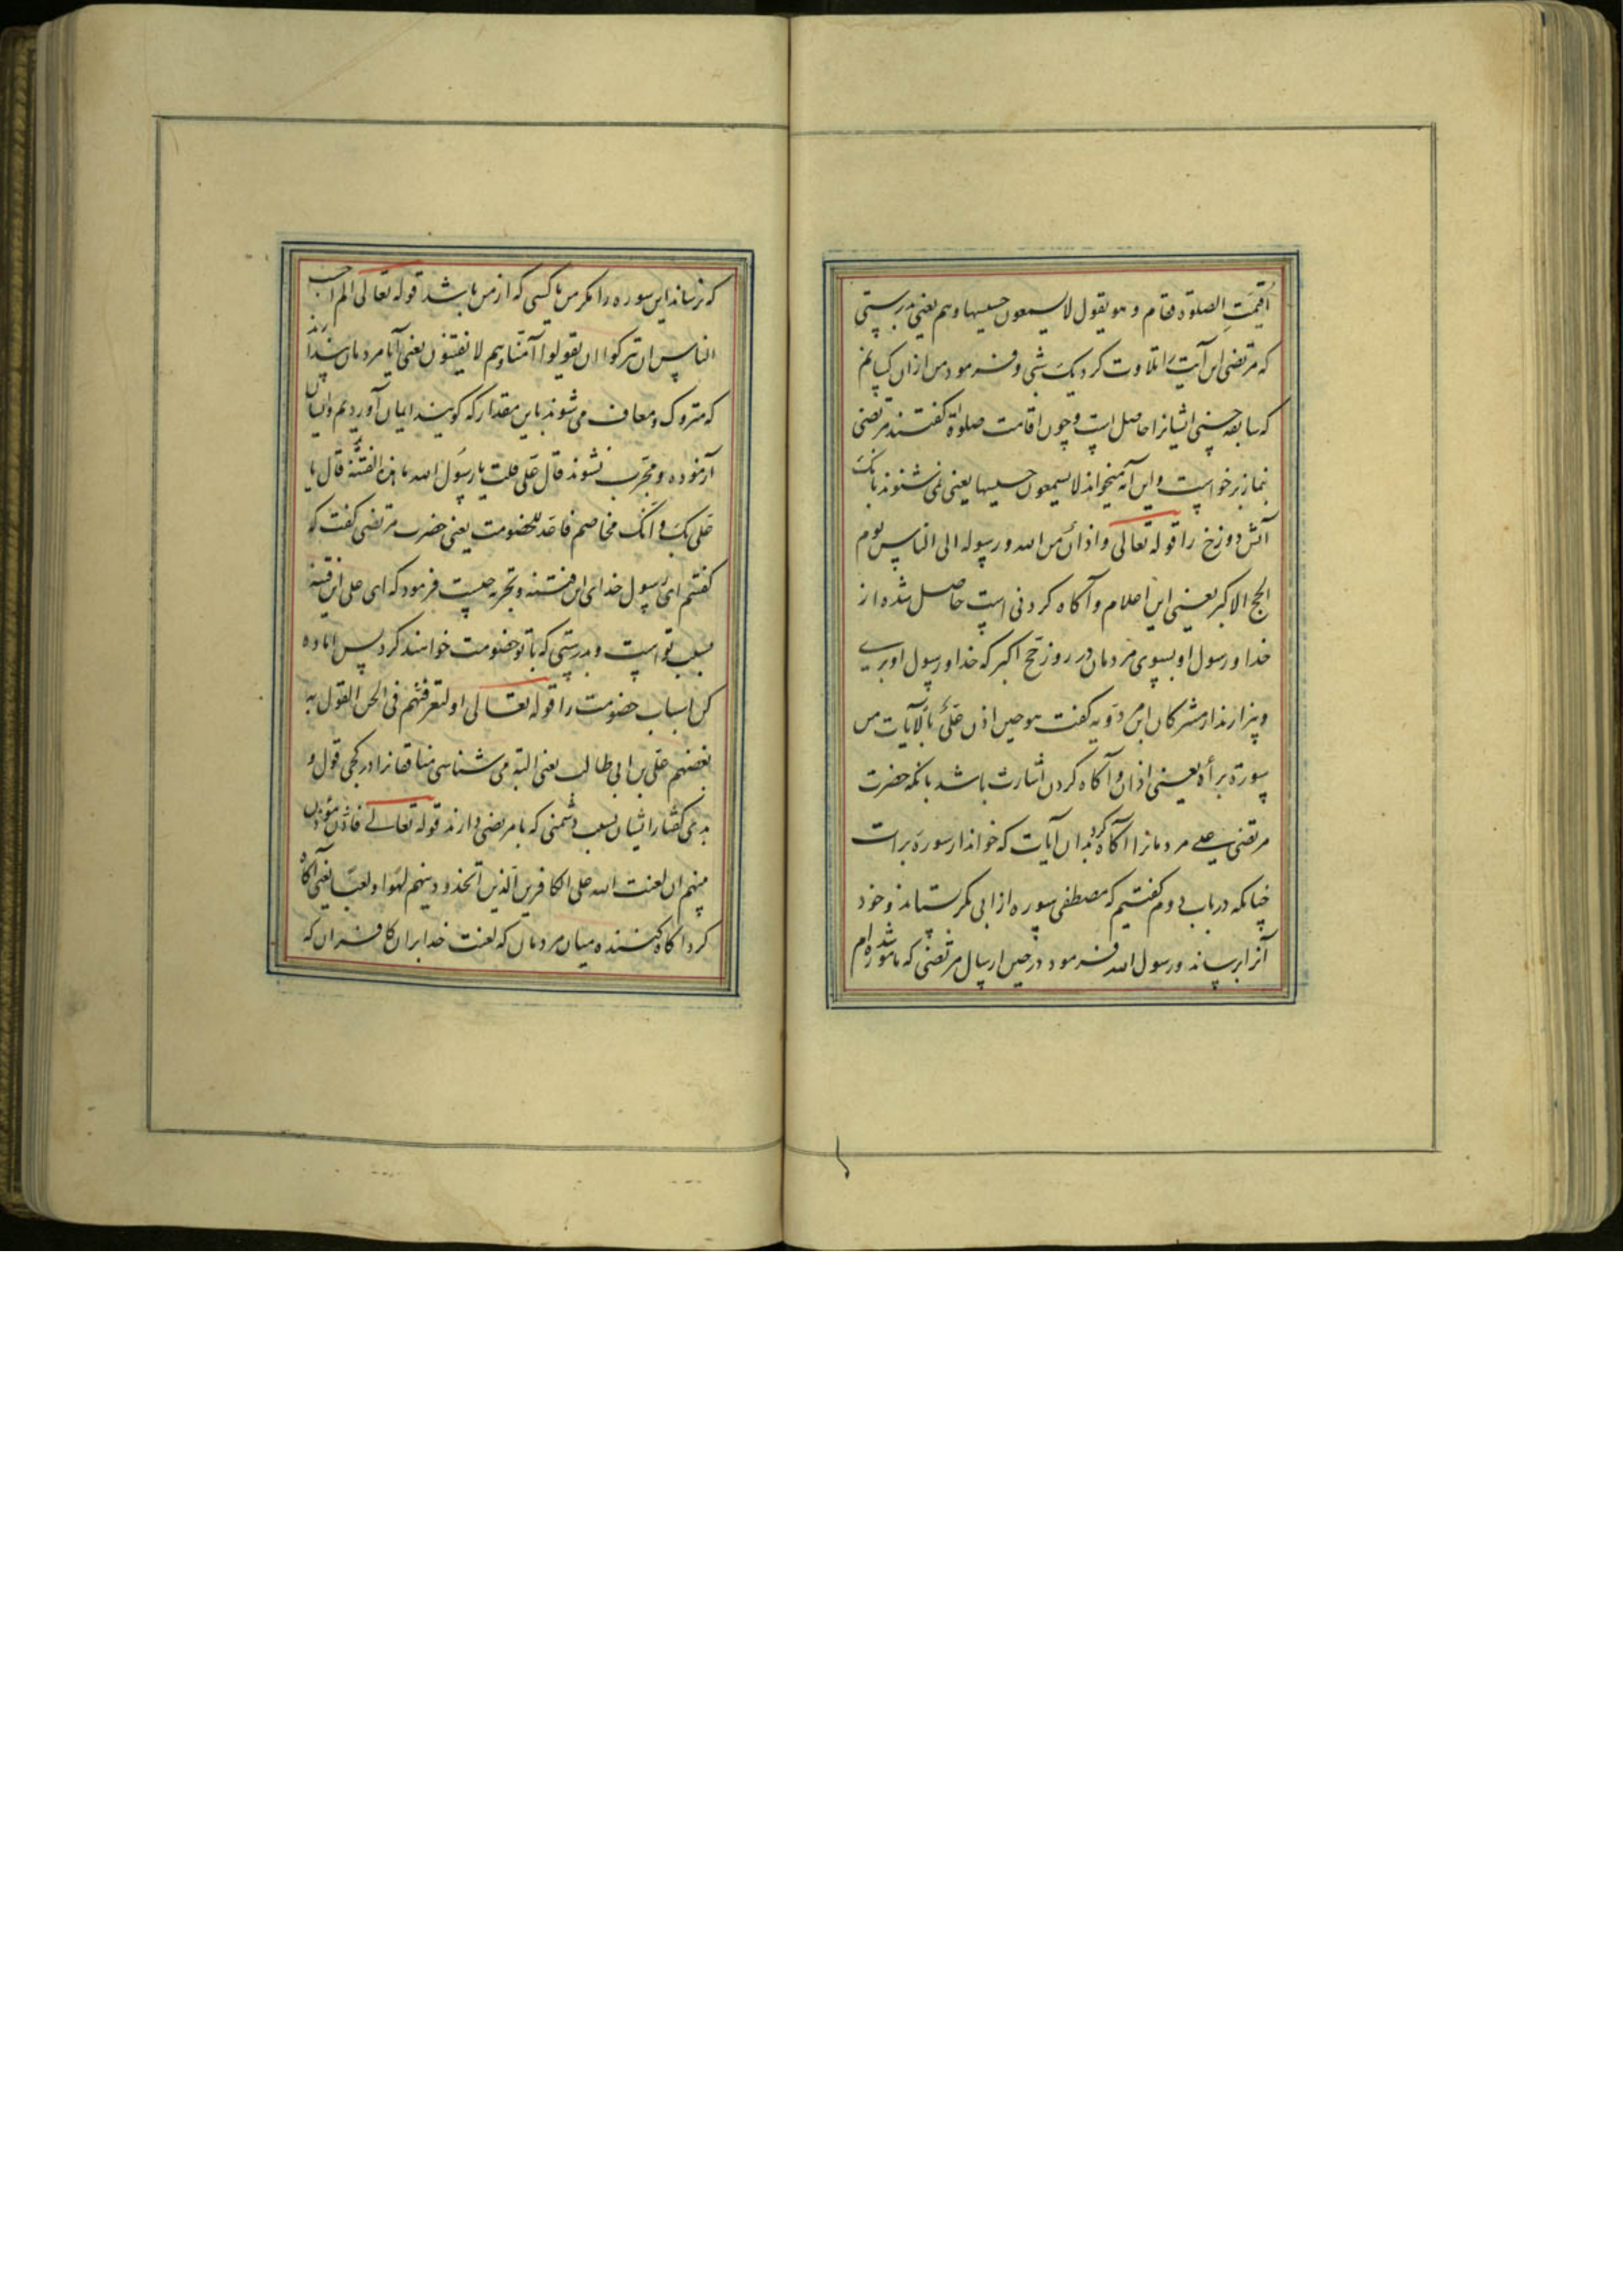 اُقیمَتِ الصلوة فقام و هو یقول لا یسمعون حسیسها و هم یعنی بدرستی
که مرتضی این آیت را تلاوت کرد یک شبی و فرمود من ازان کسانم
که سابقه حسنی ایشانرا حاصل است و چون اقامت صلوة گفتند مرتضی
بنماز برخواست و این آیه میخواند لا یسمعون حسیسها یعنی نمی شنوند بانک
آتش دوزخ را قوله تعالی و اذان من الله و رسوله الی الناس یوم
الحج الاکبر یعنی این اعلام و آکاه کردنی است حاصل شده از
خدا و رسول او بسوی مردمان در روز حج اکبر که خدا و رسول او بری
و بیزارند از مشرکان ابن مردویه کفت هو حین اذن علی بالآیات من
سورة برأة یعنی اذان و آکاه کردن اشارت باشد بانکه حضرت
مرتضی علی مردمانرا آکاه کرد بدان آیات که خواند از سورۀ برات
چنانکه در باب دوم کفتیم که مصطفی سوره از ابی بکر ستاند و خود
آنرا برساند و رسول الله فرمود در حین ارسال مرتضی که مامور شده ام
که نرساند این سوره را مکر من یا کسی که از من باشد قوله تعالی الم احسب
الناس ان یترکوا ان یقولوا آمنا و هم لا یفتنون یعنی آیا مردمان پندارند
که متروک و معاف می شوند باین مقدار که کویند ایمان آوردیم و ایشان
آزموده و مجرب نشوند قال علی قلت یا رسول الله ما هذه الفتنة قال یا
علی بک و انک مخاصم فاعد للخصومت یعنی حضرت مرتضی کفت که
کفتم ای رسول خدای این فتنه و تجربه چیست فرمود که ای علی این فتنه
بسبب تو است و بدرستی که با تو خصومت خواهند کرد پس اماده
کن اسباب خصومت را قوله تعالی و لتعرفنهم فی لحن القول به
بغضهم علی بن ابی طالب یعنی البته می شناسی منافقانرا در کجی قول و
بدی کفتار ایشان بسبب دشمنی که با مرتضی دارند قوله تعالی فاذن مؤذن
بینهم ان لعنت الله علی الکافرین الذین اتخذوا دینهم لهوا و لعبا یعنی آکاه
کرد آکاه کننده میان مردمان که لعنت خدا بران کافران که